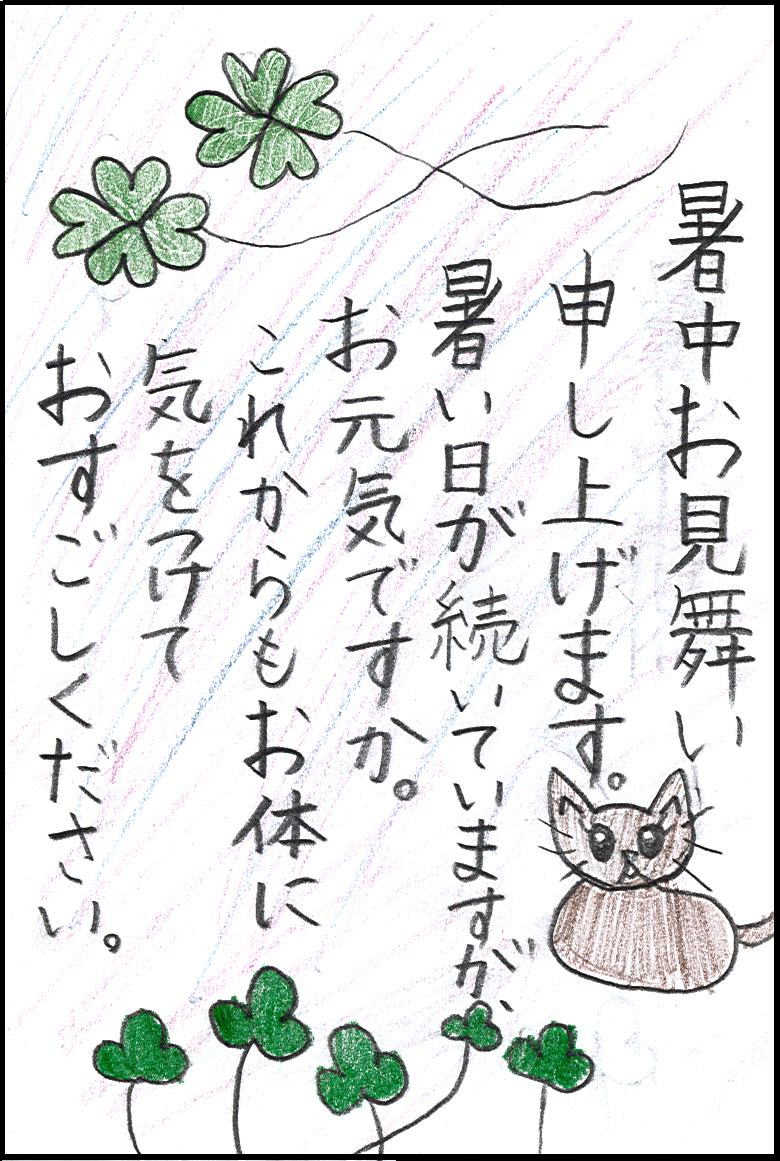 暑中お見舞い
申し上げます。
暑い日が続いていますが、
お元気ですか。
これからもお体に
気をつけて
おすごしください。